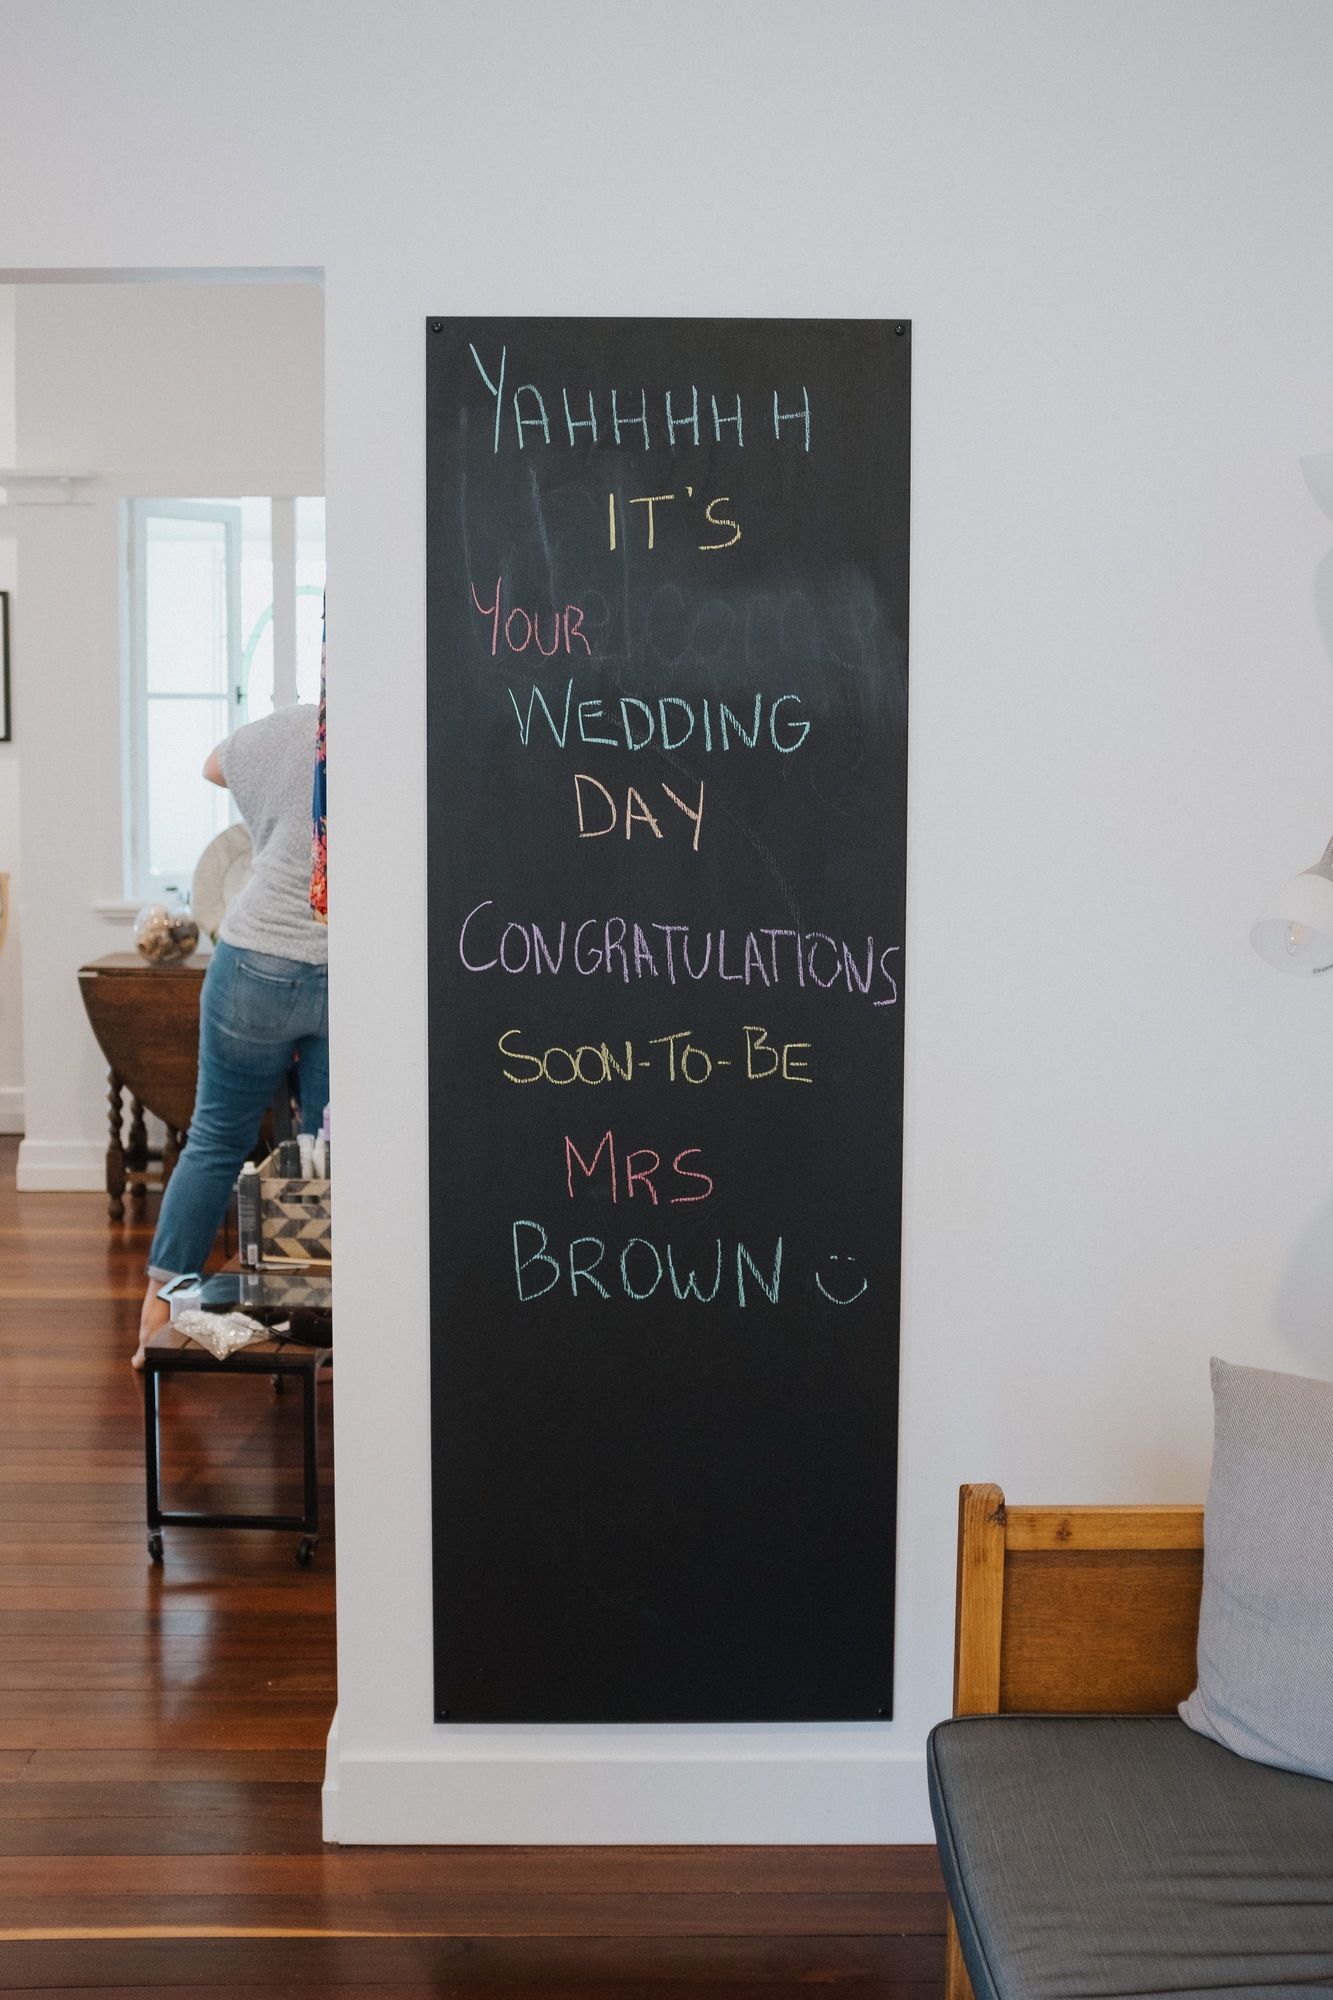 YAHHHHH
IT'S
YOUR
WEDDING
DAY
CONGRATULATIONS
SOON-TO-BE
MRS
BROWN